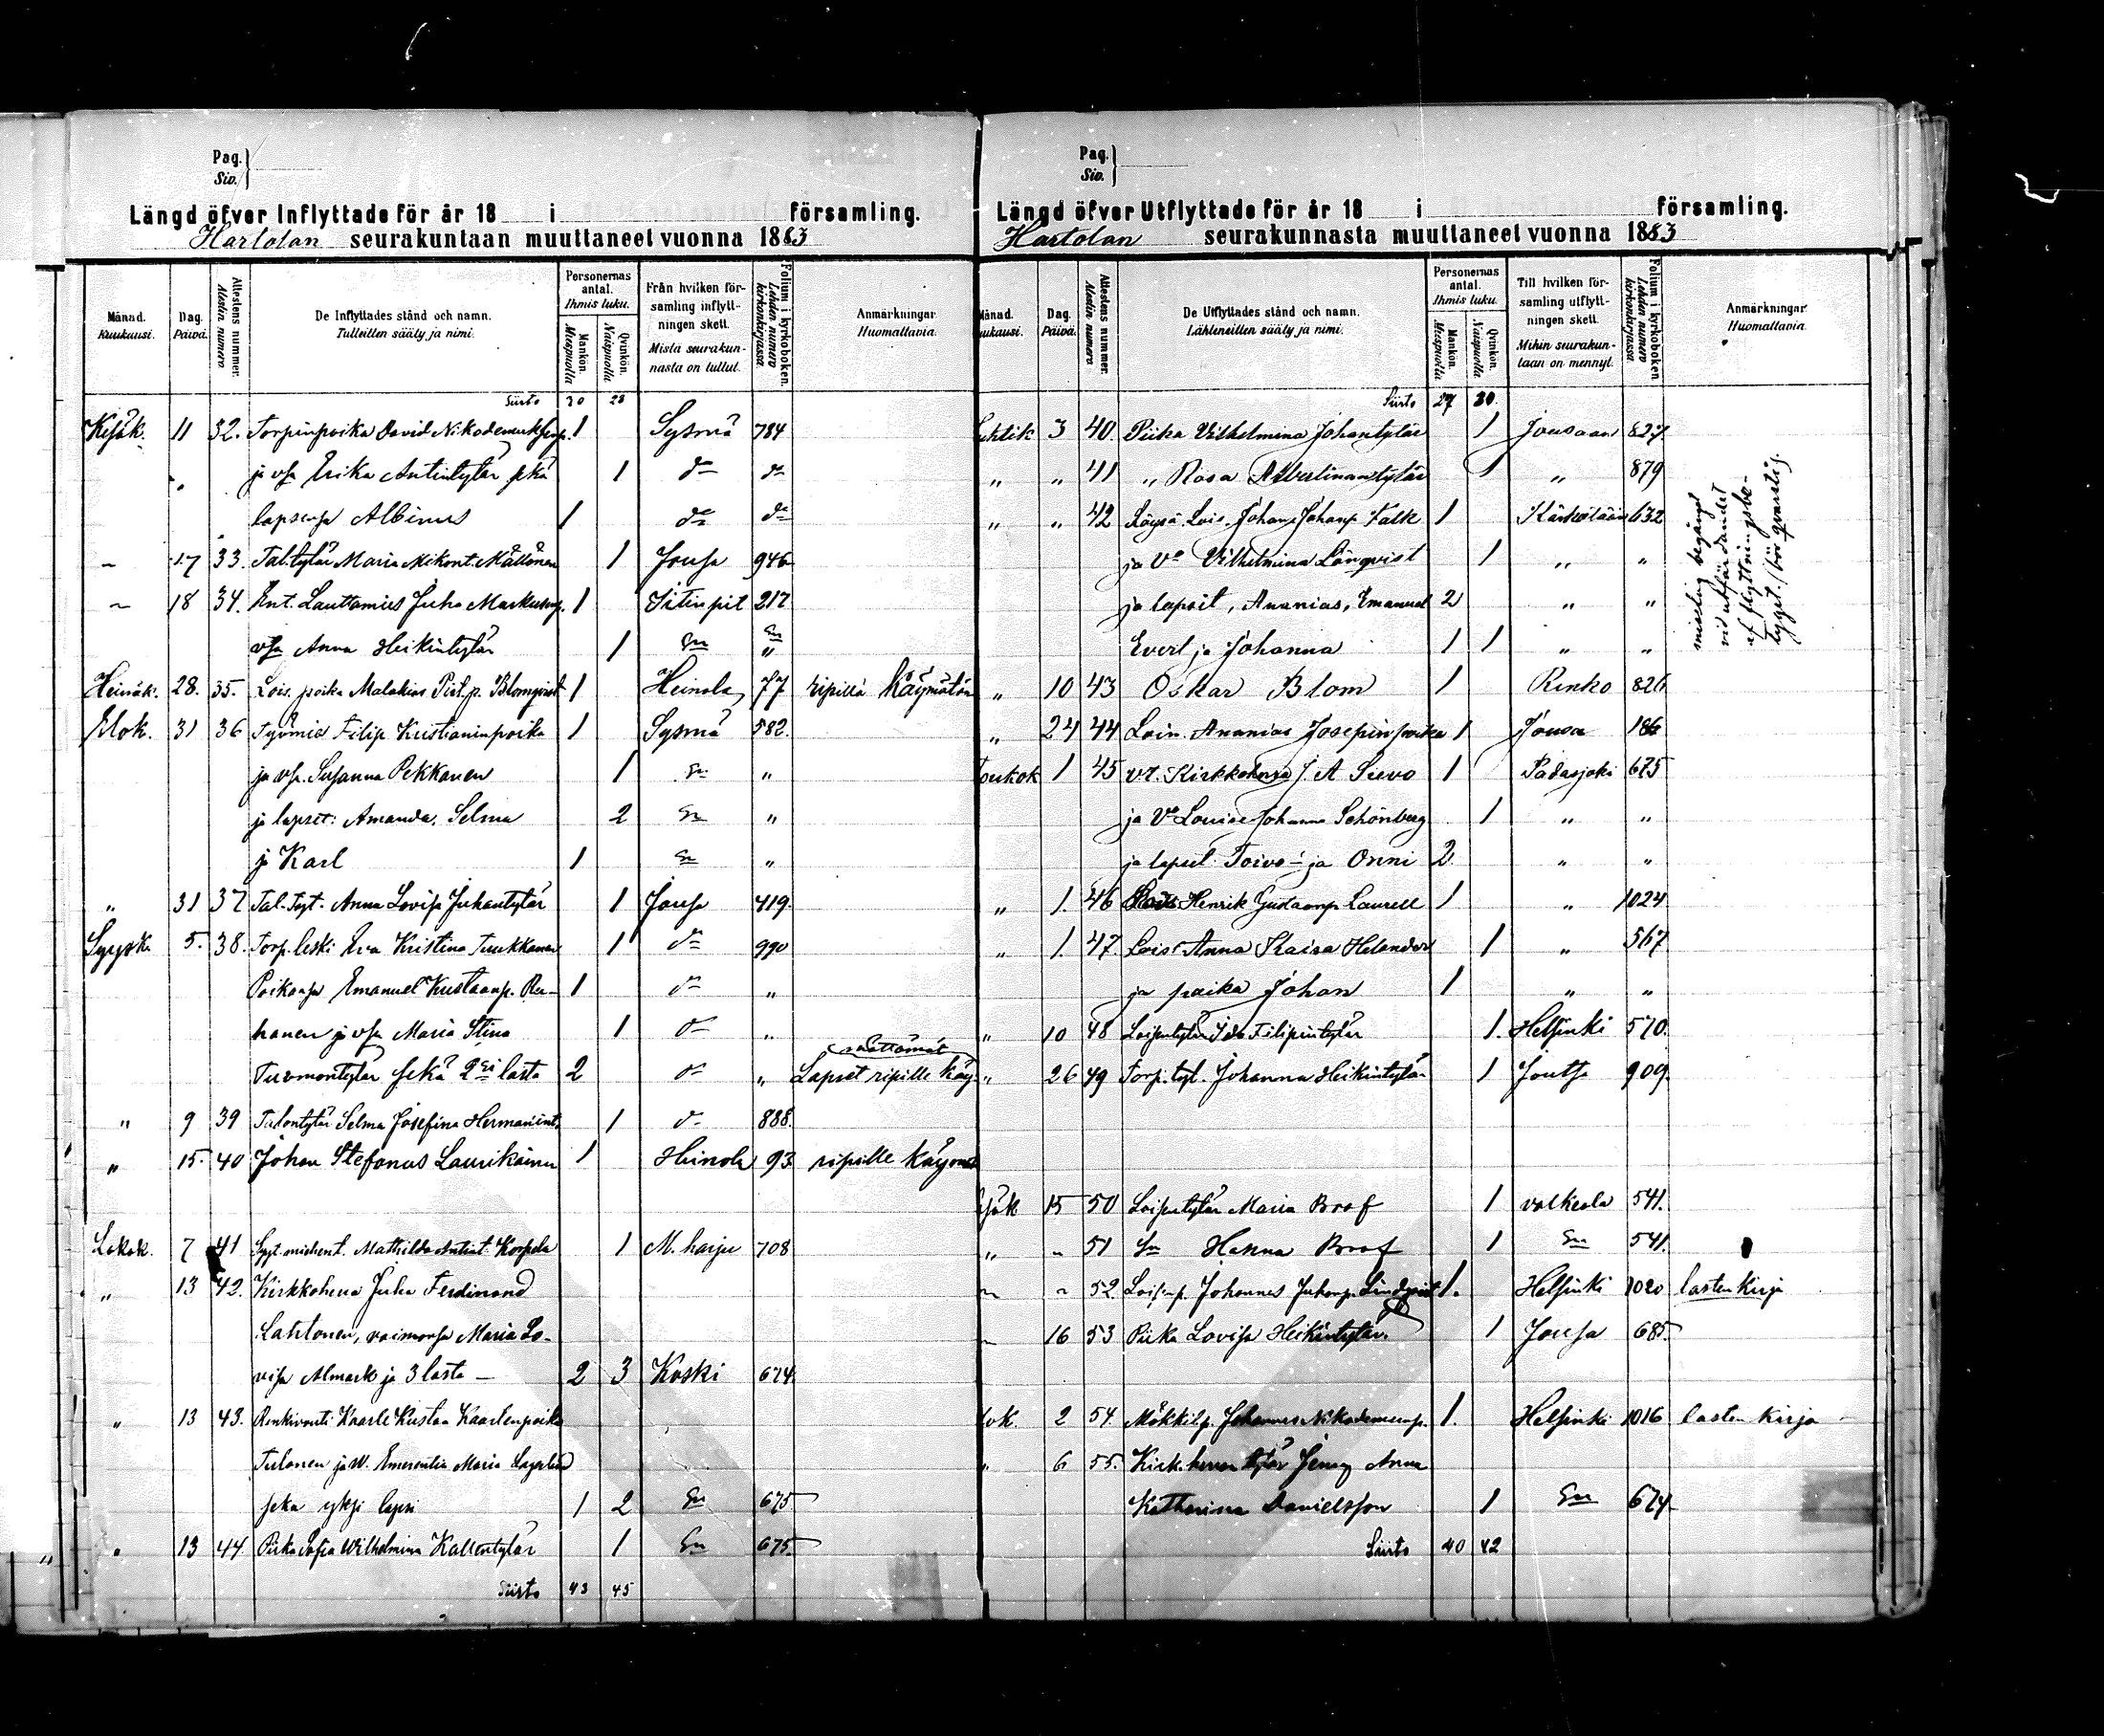 Pag.
Siv.
Längd öfver Inflyttade för år 18 i församling.
Hartolan seurakuntaan muuttaneet vuonna 1883
Månad. Kuukausi. Dag. Päivä. Attestens nummer. Atestin numero De Inflyttades stånd och namn. Tulleitten sääty ja nimi. Personernas antal. Ihmis luku. Mankön. Miespuolia Qvinkön. Naispuolia Från hvilken församling inflyttningen skett. Mistä seurakunnasta on tullut. Folium i kyrkoboken. Lehden numero kirkonkirjassa. Anmärkningar Huomattavia.
Siirto 30 28
Kesäk. 11 32. Torpinpoika David Nikodemuksenp. 1 Sysmä 784
ja vsa Erika Antintytär sekä 1 do do
lapsensa Albinus 1 do do
" 17 33. Tal.tytär Maria Mikont. Mällönen 1 Jousa 946
" 18 34. Ent. Lauttamies Juho Markusenp. 1 Iitinpit 217
vsa Anna Heikintytär 1 Sn "
Heinäk. 28. 35. Lois. poika Malakias Piet.p. Blomqvist 1 Heinola 77 ripillä käymätön
Elok. 31 36 Työmies Filip Kristianinpoika 1 Sysmä 582.
ja vsa. Susanna Pekkanen 1 Sn "
ja lapset: Amanda, Selma 2 Sn "
ja Karl 1 Sn "
" 31 37 Tal. Tyt. Anna Lovisa Juhantytär 1 Jousa 419.
Syysk. 5. 38. Torp. leski Eva Kristina Tuukkanen 1 do 990
Poikansa Emanuel Kustaanp. Rau- 1 do "
hanen ja vsa Maria Stina 1 do "
Tuomontytär sekä 2si lasta 2 do " Lapset ripille käy-
mättömät
" 9 39 Talontytär Selma Josefina Hermanint. 1 do 888.
" 15. 40 Johan Stefanus Laurikainen 1 Heinola 93 ripille käymät
Lokak. 7 41 Mathilda Antint. Korpela 1 M. harju 708
" 13 42. Kirkkoherra Juha Ferdinand
Lahtonen, vaimonsa Maria Lo-
visa Almark ja 3 lasta 2 3 Koski 674
" 13 43. Renkivouti Kaarle Kustaa Kaarlenpoika
Tulonen ja W. Emerentia Maria Lagerlund
sekä yksi lapsi 1 2 Sn 675
" 13 44. Piika Sofia Wilhelmina Kallentytär 1 Sn 675
Siirto 43 45
Pag.
Siv.
Längd öfver Utflyttade för år 18 i församling.
Hartolan seurakunnasta muuttaneet vuonna 1883
Månad. Kuukausi. Dag. Päivä. Attestens nummer. Atestin numero De Utflyttades stånd och namn. Lähteneitten sääty ja nimi. Personernas antal. Ihmis luku. Mankön. Miespuolia Qvinkön. Naispuolia Till hvilken församling utflyttningen skett. Mihin seurakuntaan on mennyt. Folium i kyrkoboken Lehden numero kirkonkirjassa Anmärkningar Huomattavia.
Siirto 27 30
Huhtik 3 40. Piika Vilhelmina Johantytär 1 Jousaan 827.
" " 41 " Rosa Albertinantytär 1 " 879
" " 42 Köyhä Lois. Johan Johanp. Falk 1 Kärkölään 632
ja Vo Vilhelmina Lönqvist 1 " "
ja lapsit, Ananias, Emanuel 2 " "
Evert ja Johanna 1 1 " "
misstag begånget
vid utfärdandet
af flyttningsbe-
tyget.
" 10 43 Oskar Blom 1 Renko 826
" 24 44 Loin. Ananias Josepinpoika 1 Jousa 186
Toukok 1 45 vt. Kirkkoherra J. A Sievo 1 Padasjoki 675
ja Vo Louise Johanna Schönberg 1 " "
ja lapsit Toivo ja Onni 2 " "
" 1. 46 Henrik Gustaanp. Laurell 1 " 1024
" 1. 47. Lois. Anna Kaisa Helander 1 " 567
ja poika Johan 1 " "
" 10 48 Loisentytär Ida Filipintytär 1. Helsinki 570.
" 26 49 Torp. tyt. Johanna Heikintytär 1 Joutsa 909.
Kesäk 15 50 Loisentytär Maria Broof 1 valkeala 541.
" " 51 Sn Hanna Broof 1 Sn 541.
" " 52 Loisenp. Johannes Juhanp. Lindqvist 1. Helsinki 1020 lasten kirja
" 16 53 Piika Lovisa Heikintytär. 1 Jousa 685
Elok. 2 54. Mökkilp. Johannes Nikodemusenp. 1. Helsinki 1016 lasten kirja
" 6 55. Kirk. herran tytär Jenny Anna
Katharina Danielsson 1 Sn 674
Siirto 40 42